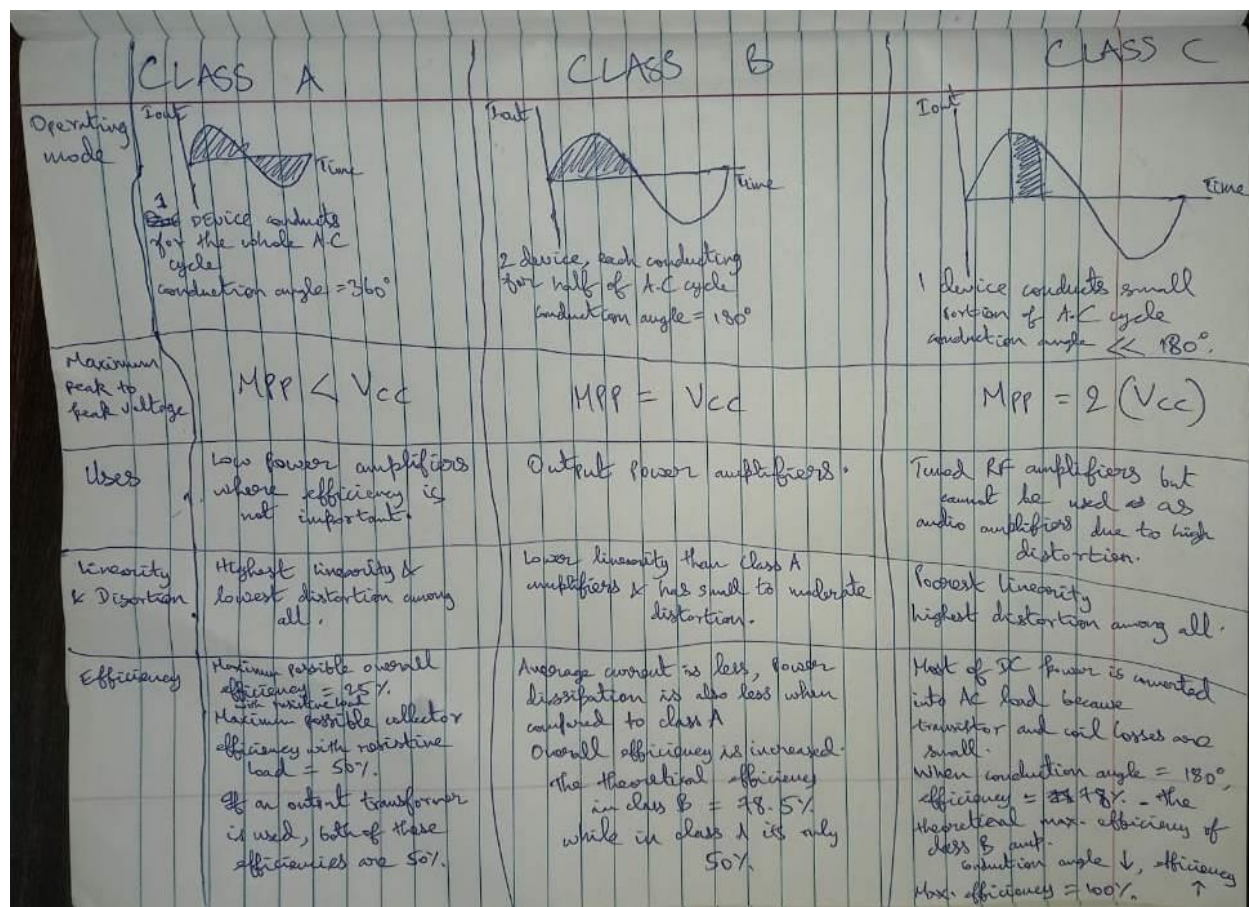 CLASS A
CLASS B
CLASS C
Operating
mode
Iout
Time
1
DEvice conducts
for the whole A-C
cycle
conduction angle = 360°
Iout
Time
2 device, each conducting
for half of A.C cycle
conduction angle = 180°
Iout
Time
1 device conducts small
portion of A.C cycle
conduction angle << 180°.
Maximum
peak to
peak voltage
MPP < Vcc
MPP = Vcc
MPP = 2 (Vcc)
Uses
Low power amplifiers
where efficiency is
not important.
Output Power amplifiers.
Tuned RF amplifiers but
cannot be used as
audio amplifiers due to high
distortion.
Linearity
& Disortion
Highest linearity &
lowest distortion among
all.
Lower linearity than Class A
amplifiers & has small to moderate
distortion.
Poorest linearity
highest distortion among all.
Efficiency
Maximum possible overall
efficiency = 25%.
with positive load
Maximum possible collector
efficiency with resistive
load = 50%.
If an output transformer
is used, both of these
efficiencies are 50%.
Average current is less, power
dissipation is also less when
compared to class A
Overall efficiency is increased.
The theoretical efficiency
in class B = 78.5%
while in class A is only
50%.
Most of DC power is converted
into AC load because
transistor and coil losses are
small.
When conduction angle = 180°,
efficiency = 78%. the
theoretical max. efficiency of
class B amp.
conduction angle ↓, efficiency
↑
Max. efficiency = 100%.